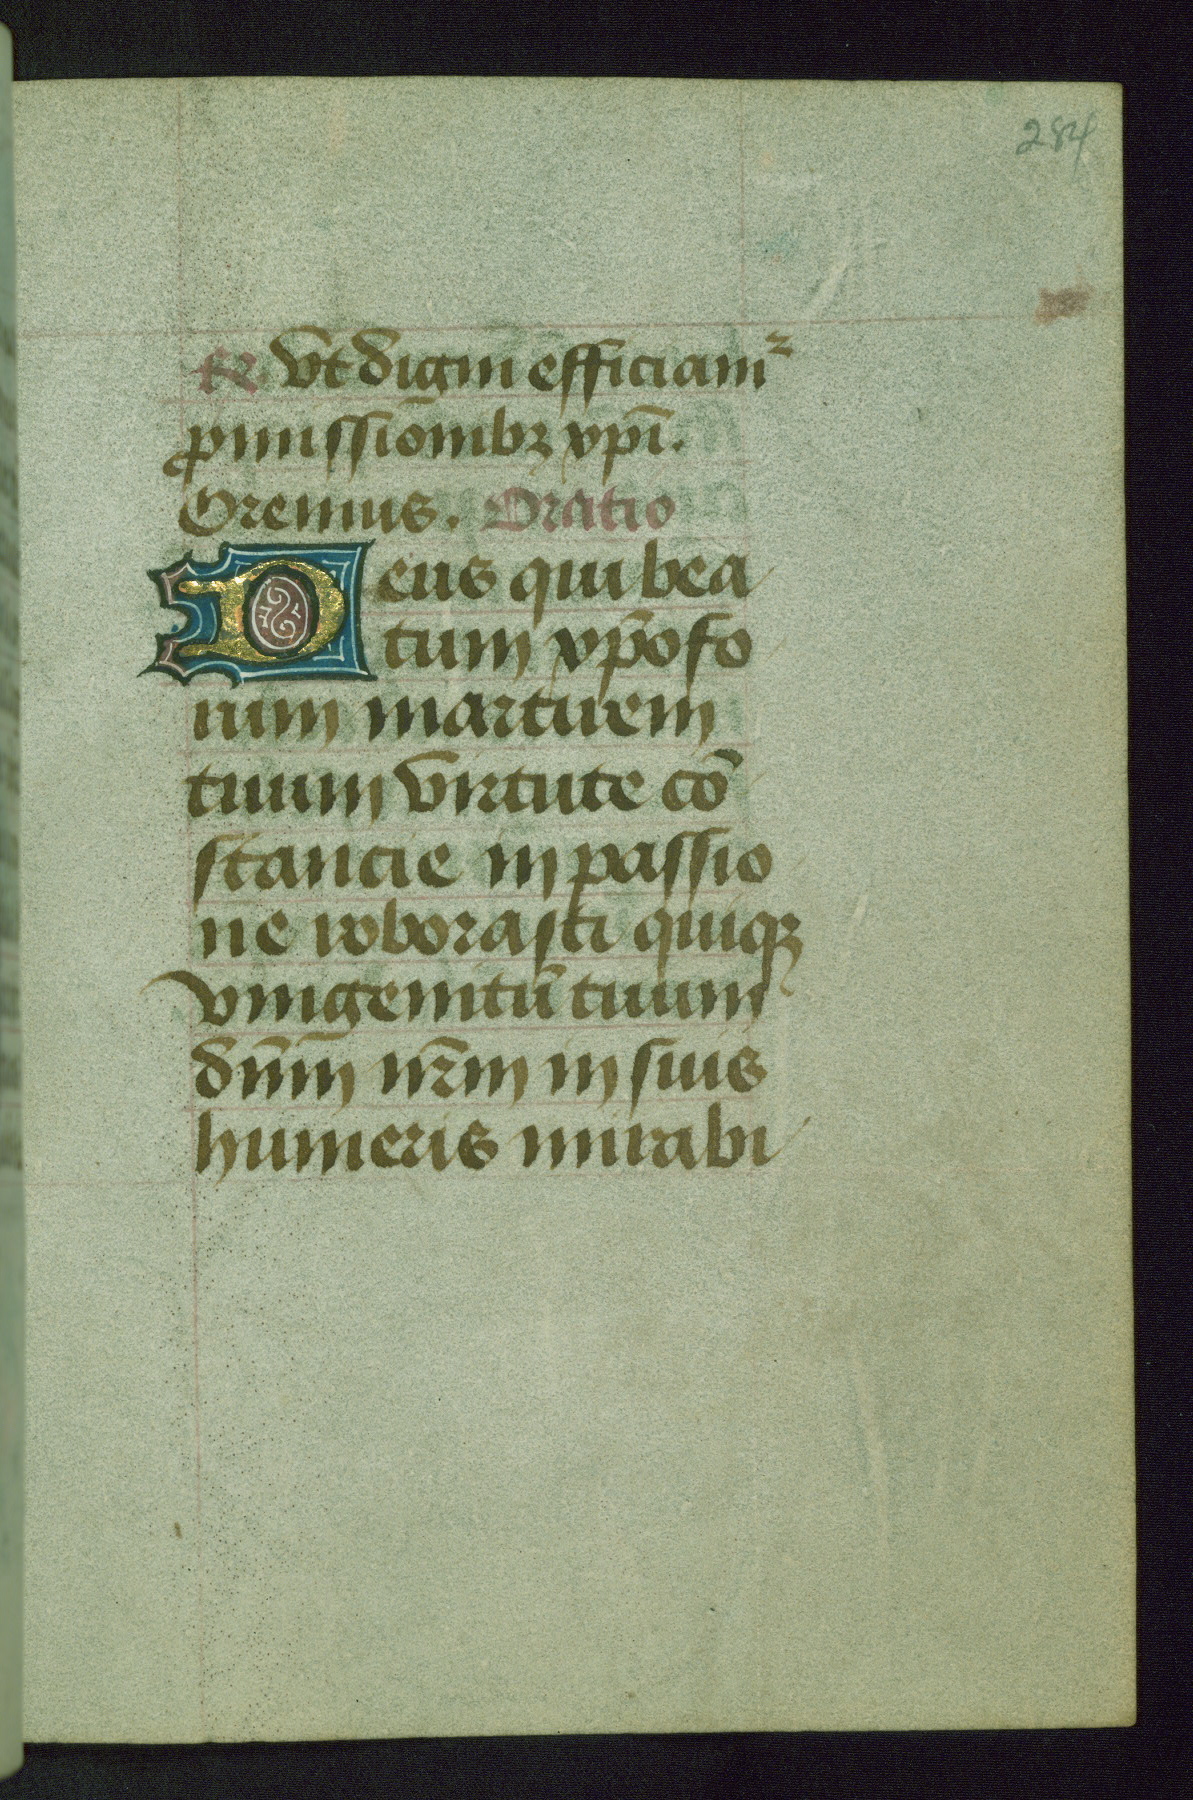 284
R Vt digni efficiamꝰ
ꝓmissionibꝫ xp̄i.
Oremus. Oratio
Deus qui bea
tum xp̄ofo
rum martirem
tuum virtute cō
stancie in passio
ne roborasti quiqꝫ
vnigenitū tuum
dn̄m nr̄m in suis
humeris mirabi